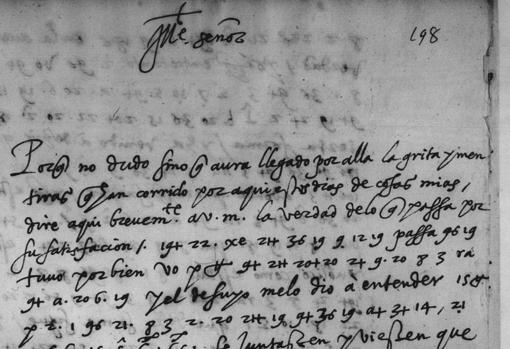 Ill.e señor
198
Porq̃ no dudo sino q̃ aura llegado por alla la grita y men
tiras q̃ han corrido por aqui estos dias de cosas mias,
dire aqui brevem.te a v. m. la verdad de lo q̃ passa por
su satisfacion /. 22. xe 24 36 19 9 12 19 passa 96 19
tuvo por bien vo 94 24 20 20 24 9. 20 8 3
94 a. 20 6. 19 y el de suyo me lo dio à entender
1 96 21. 8 3 2. 20 24 19 94 36 19 a 3 14, 21
se juntassen y viessen que